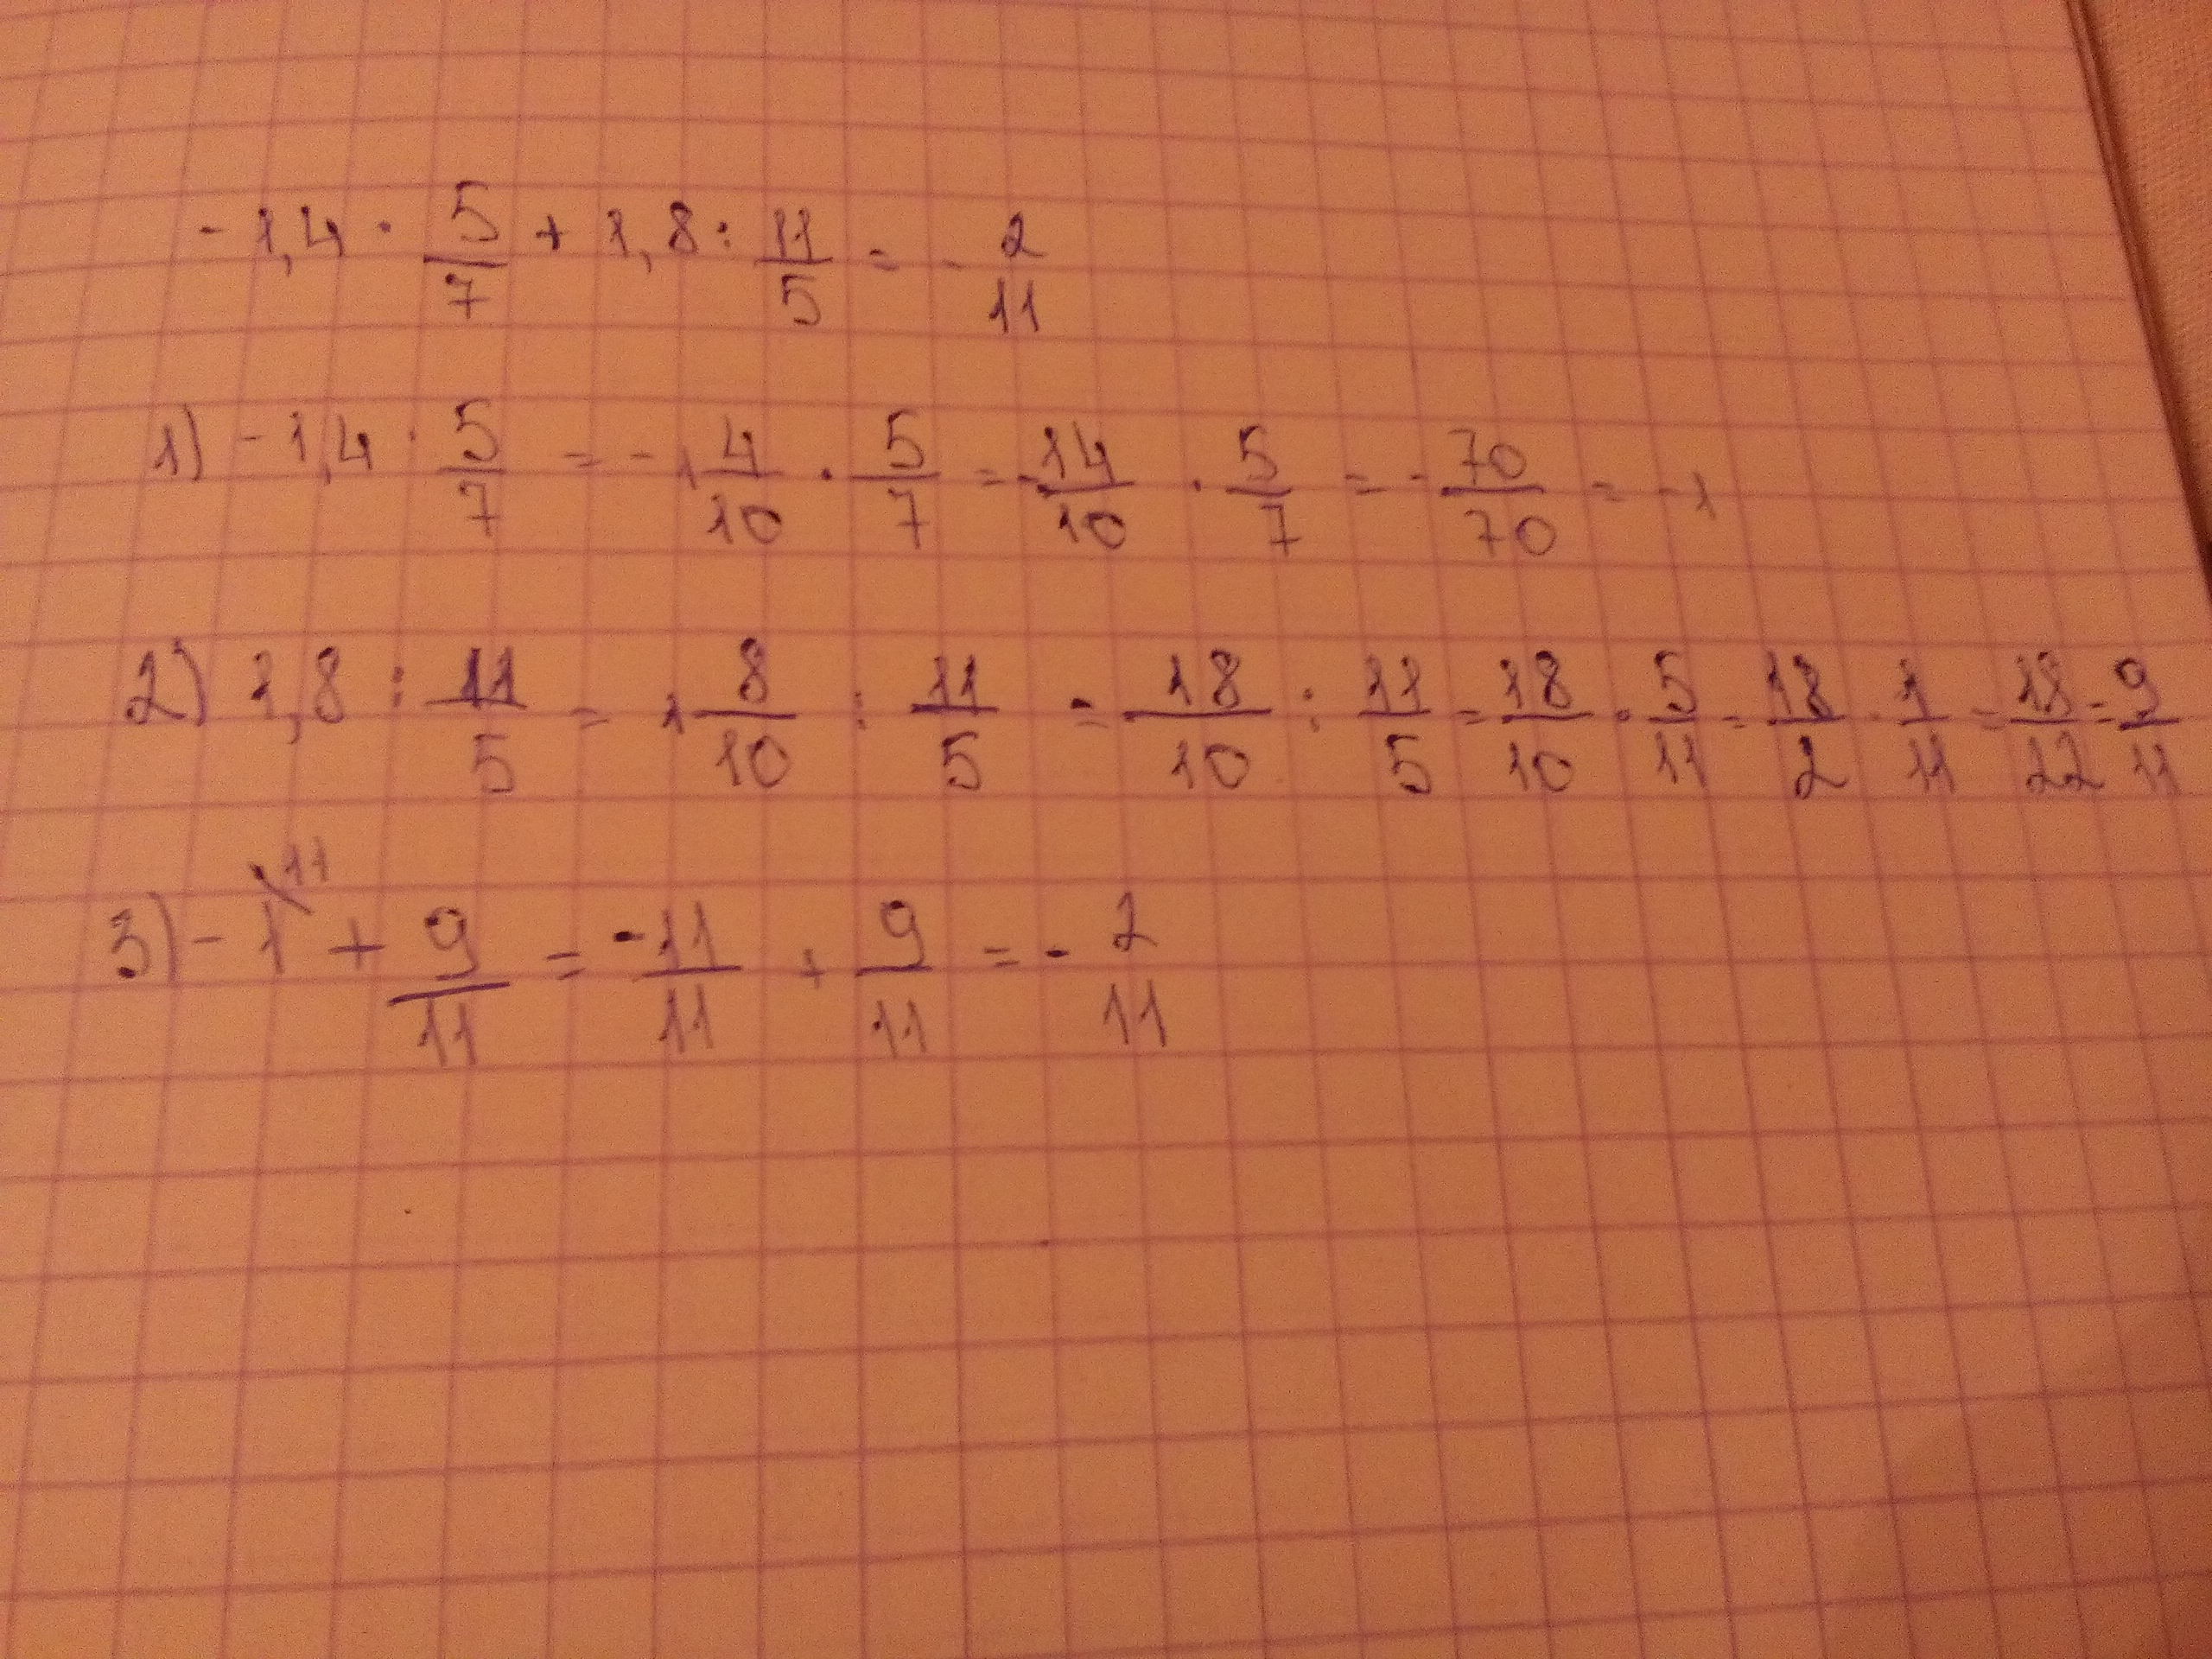 -1,4 · 5/7 + 1,8 : 11/5 = - 2/11
1) -1,4 · 5/7 = -1 4/10 · 5/7 = -14/10 · 5/7 = -70/70 = -1
2) 1,8 : 11/5 = 1 8/10 : 11/5 = 18/10 : 11/5 = 18/10 · 5/11 = 18/2 · 1/11 = 18/22 = 9/11
3) -1\11 + 9/11 = -11/11 + 9/11 = - 2/11